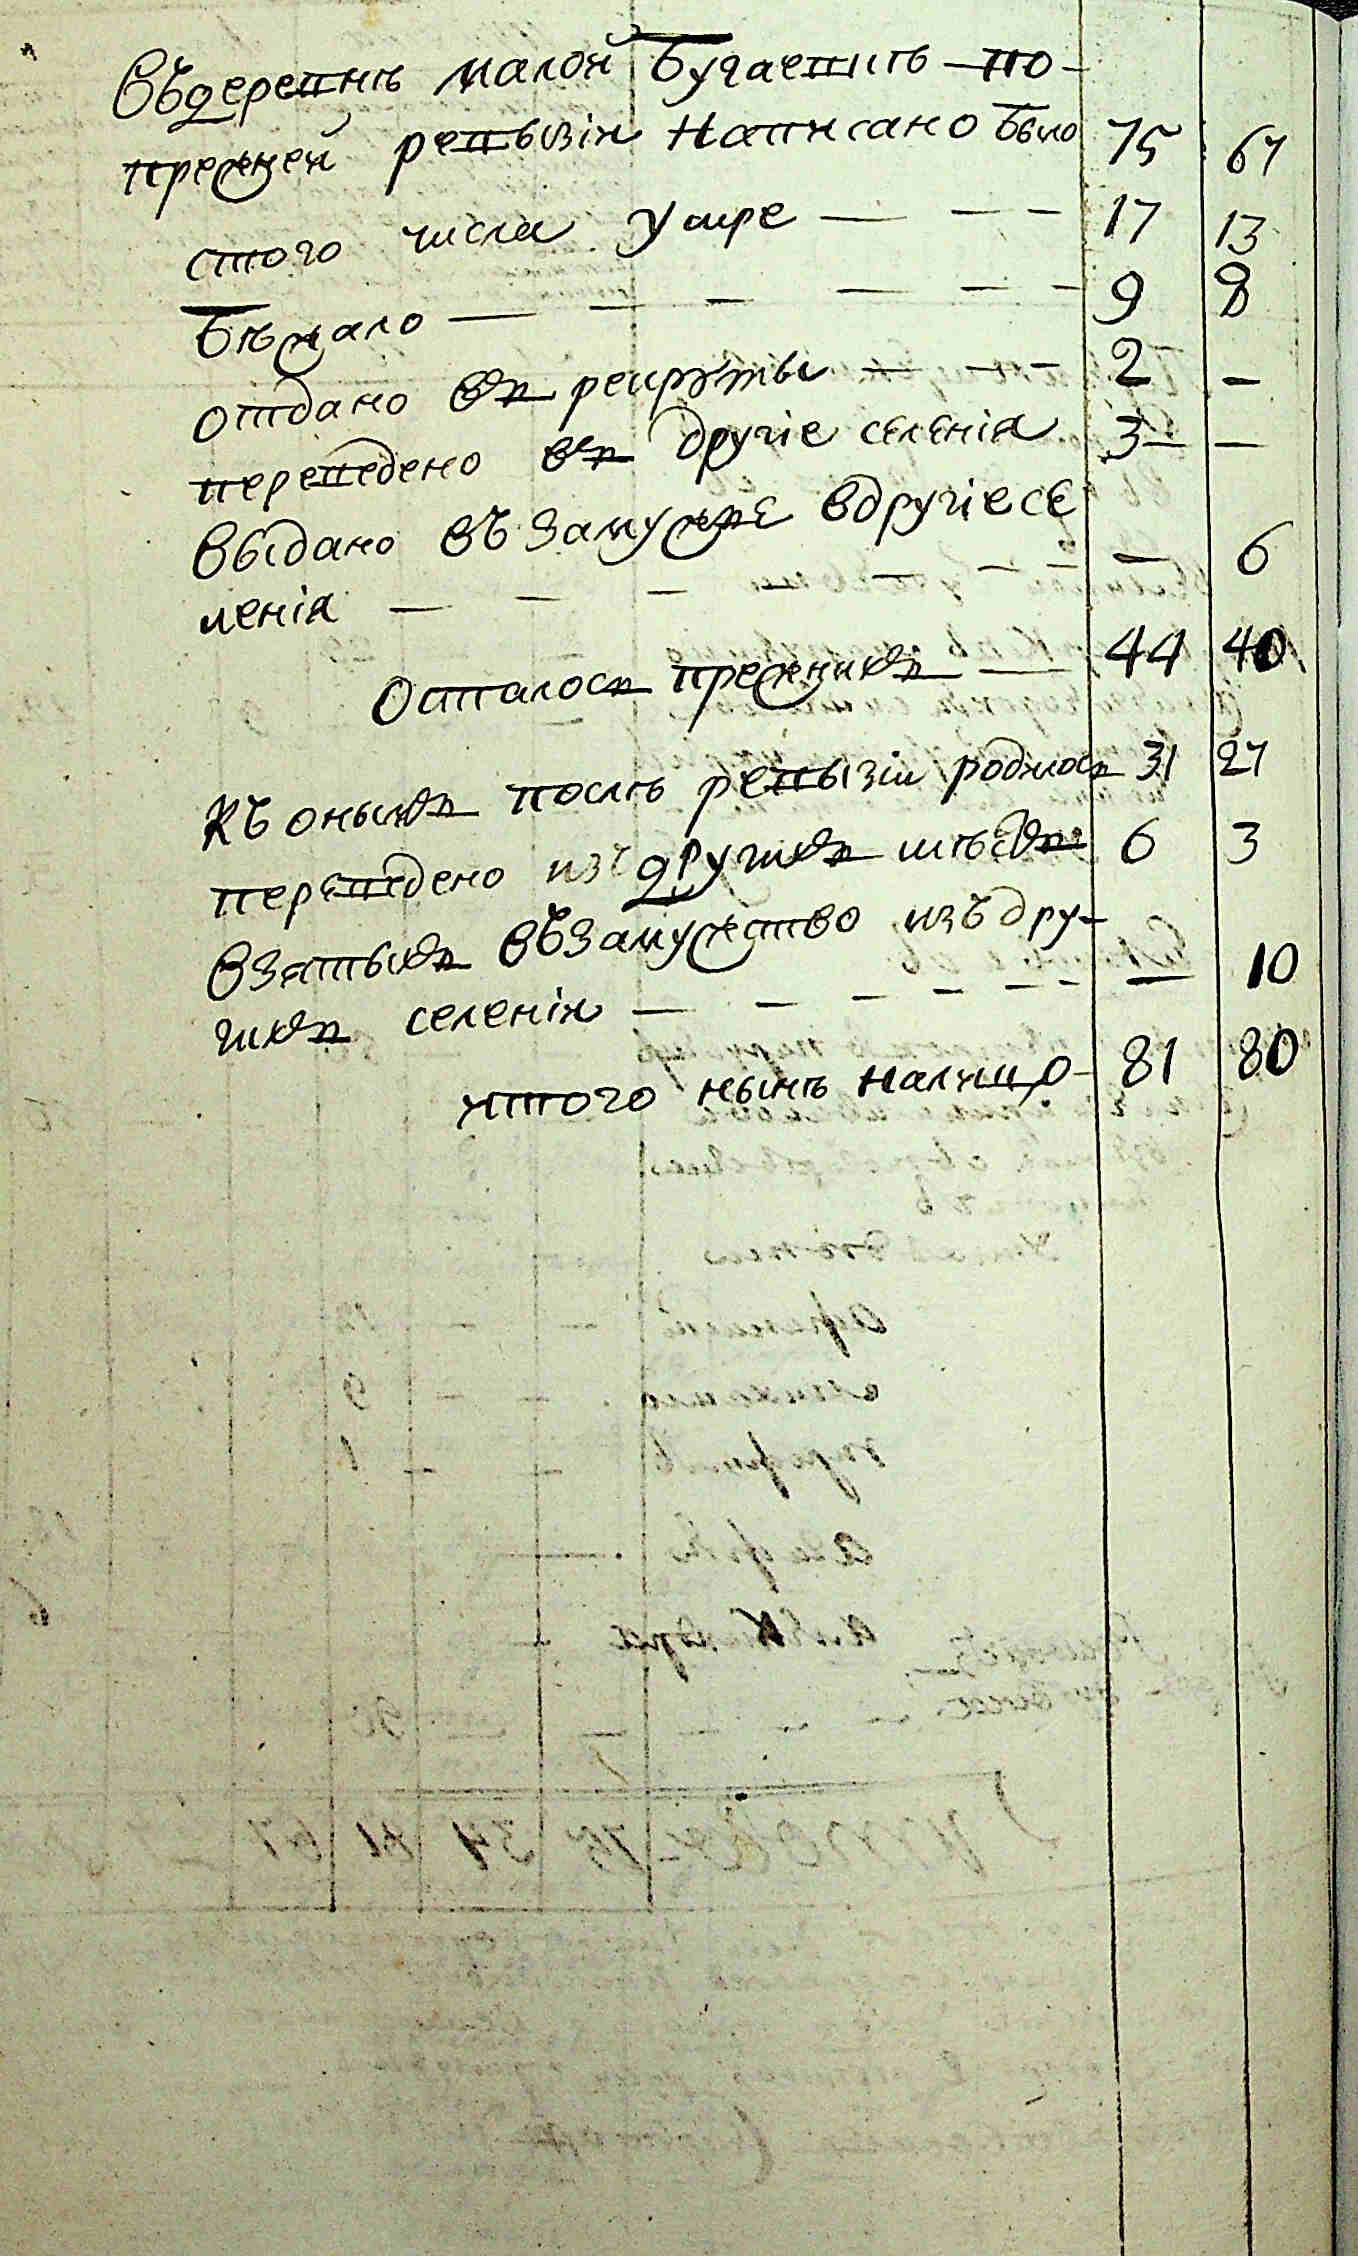 Въ деревнѣ малой Бугаевкѣ по
прежней ревизіи написано было 75 67
стого числа умре — — — 17 13
Бѣжало — — — — — — 9 8
отдано въ рекруты — — — 2 —
переведено въ другіе селенія 3 — —
выдано въ замужъе вдругіе се
ленія — — — — — — — — 6
Осталось прежнихъ — 44 40
Къ онымъ послѣ ревизіи родилось 31 27
переведено изъ другихъ мѣстъ 6 3
Взятыхъ въ замужство изъ дру-
гихъ селеніи — — — — — — — 10
итого нынѣ налицо 81 80